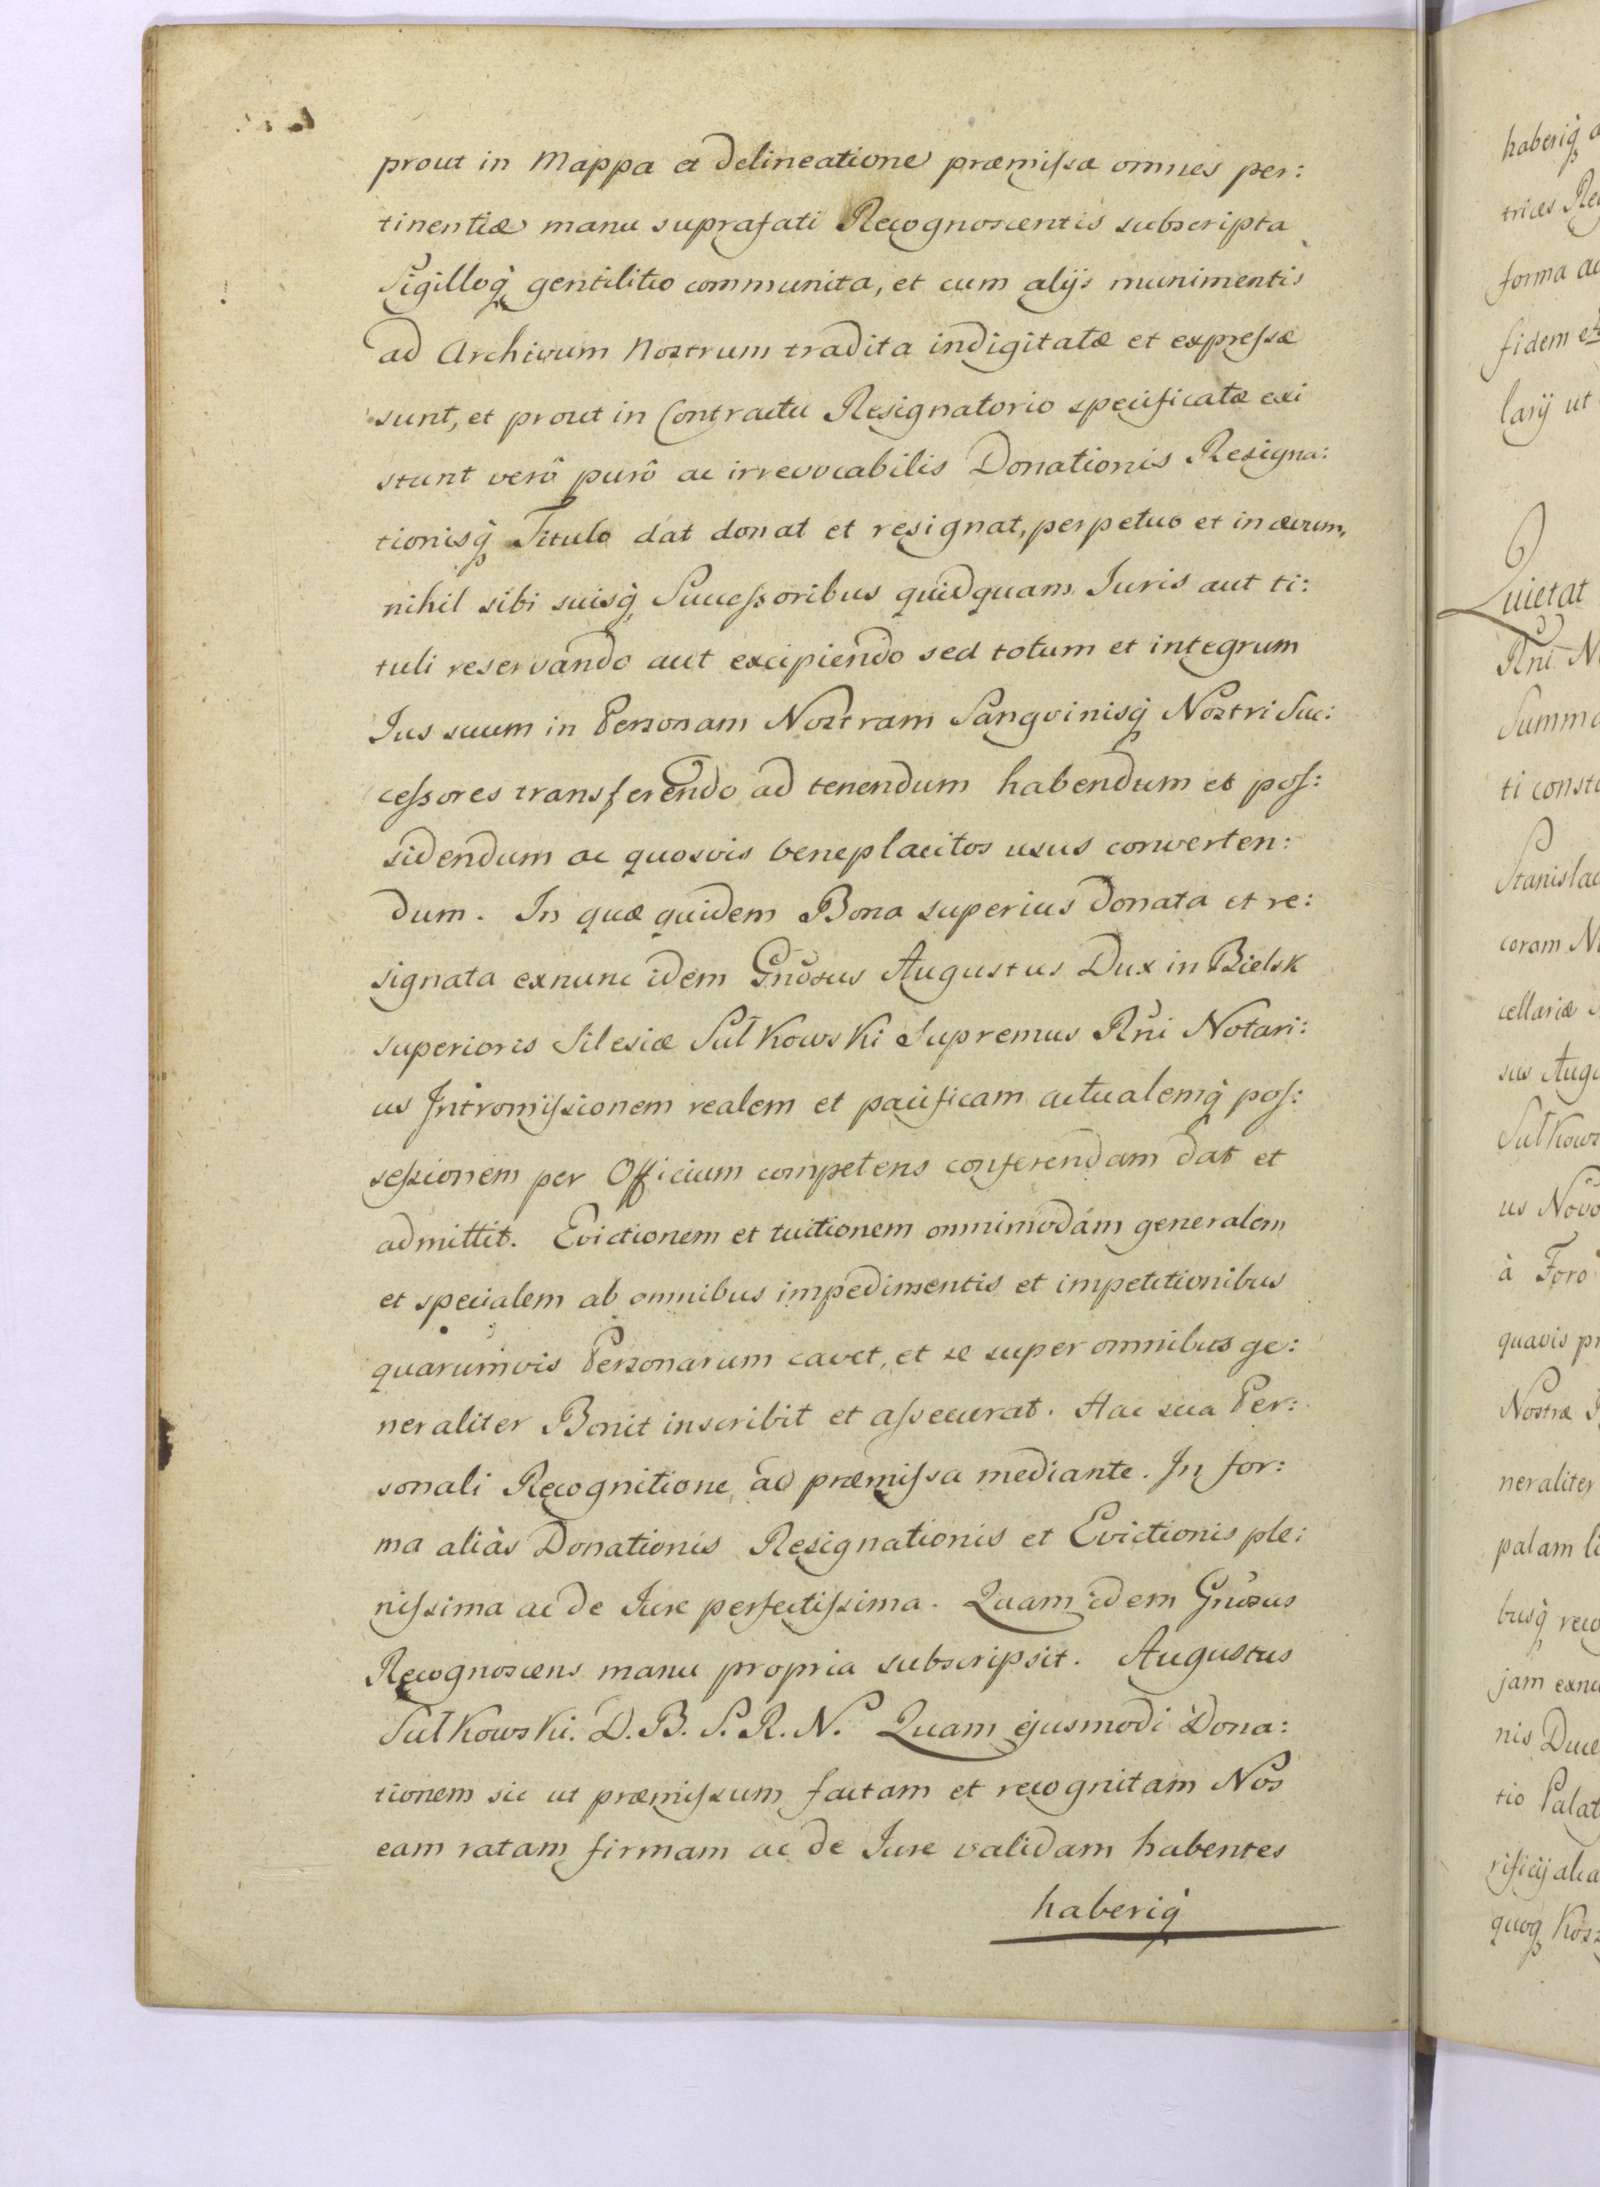 prout in Mappa et delineatione præmissæ omnes per:
tinentiæ manu suprafati Recognoscentis subscripta
Sigilloq̀ gentilitio communita, et cum alijs munimentis
ad Archivum Nostrum tradita indigitatæ et expressæ
sunt, et prout in Contractu Resignatorio specificatæ exi
stunt verô purô ac irrevocabilis Donationis Resigna:
tionisq̀ Titulo dat donat et resignat, perpetuo et in ævum,
nihil sibi suisq̀ Successoribus quidquam Juris aut ti:
tuli reservando aut excipiendo sed totum et integrum
Jus suum in Personam Nostram Sangvinisq̀ Nostri Suc:
cessores transferendo ad tenendum habendum et pos:
sidendum ac quosvis beneplacitos usus converten:
dum. In quæ quidem Bona superius donata et re:
signata exnunc idem Gnosus Augustus Dux in Bielsk
superioris Silesiæ Sułkowski Supremus Rni Notari:
us Intromissionem realem et pacificam actualemq̀ pos:
sessionem per Officium competens conferendam dat et
admittit. Evictionem et tuitionem omnimodam generalem
et specialem ab omnibus impedimentis et impetitionibus
quarumvis Personarum cavet, et se super omnibus ge:
neraliter Bonit inscribit et assecurat. Hac sua Per:
sonali Recognitione ad præmissa mediante. In for:
ma aliàs Donationis Resignationis et Evictionis ple:
nissima ac de Jure perfectissima. Quam idem Gnosus
Recognoscens manu propria subscripsit. Augustus
Sułkowski. D. B. S. R. N. Quam ejusmodi Dona:
tionem sic ut præmissum factam et recognitam Nos
eam ratam firmam ac de Jure validam habentes
haberiq̀
haberiq̀
trices
forma
fidem
larij ut
Quietat
Rni
ti
coram
cellariæ
à Foro
quavis
Nostræ
neraliter
palam
busq̀
jam
nis
tio
quoq̀